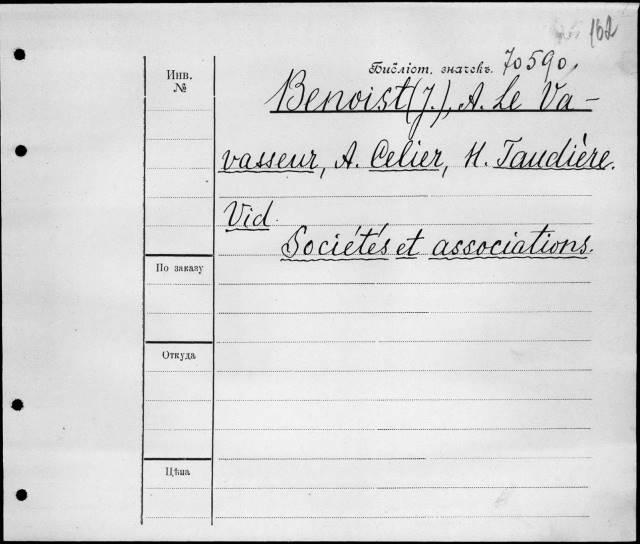 162
Библіот. значекъ. 70590.
Инв.
№
Benoist (J.), A. Le Va-
vasseur, A. Celier, H. Taudière.
Vid.
Sociétés et associations.
По заказу
Откуда
Цѣна